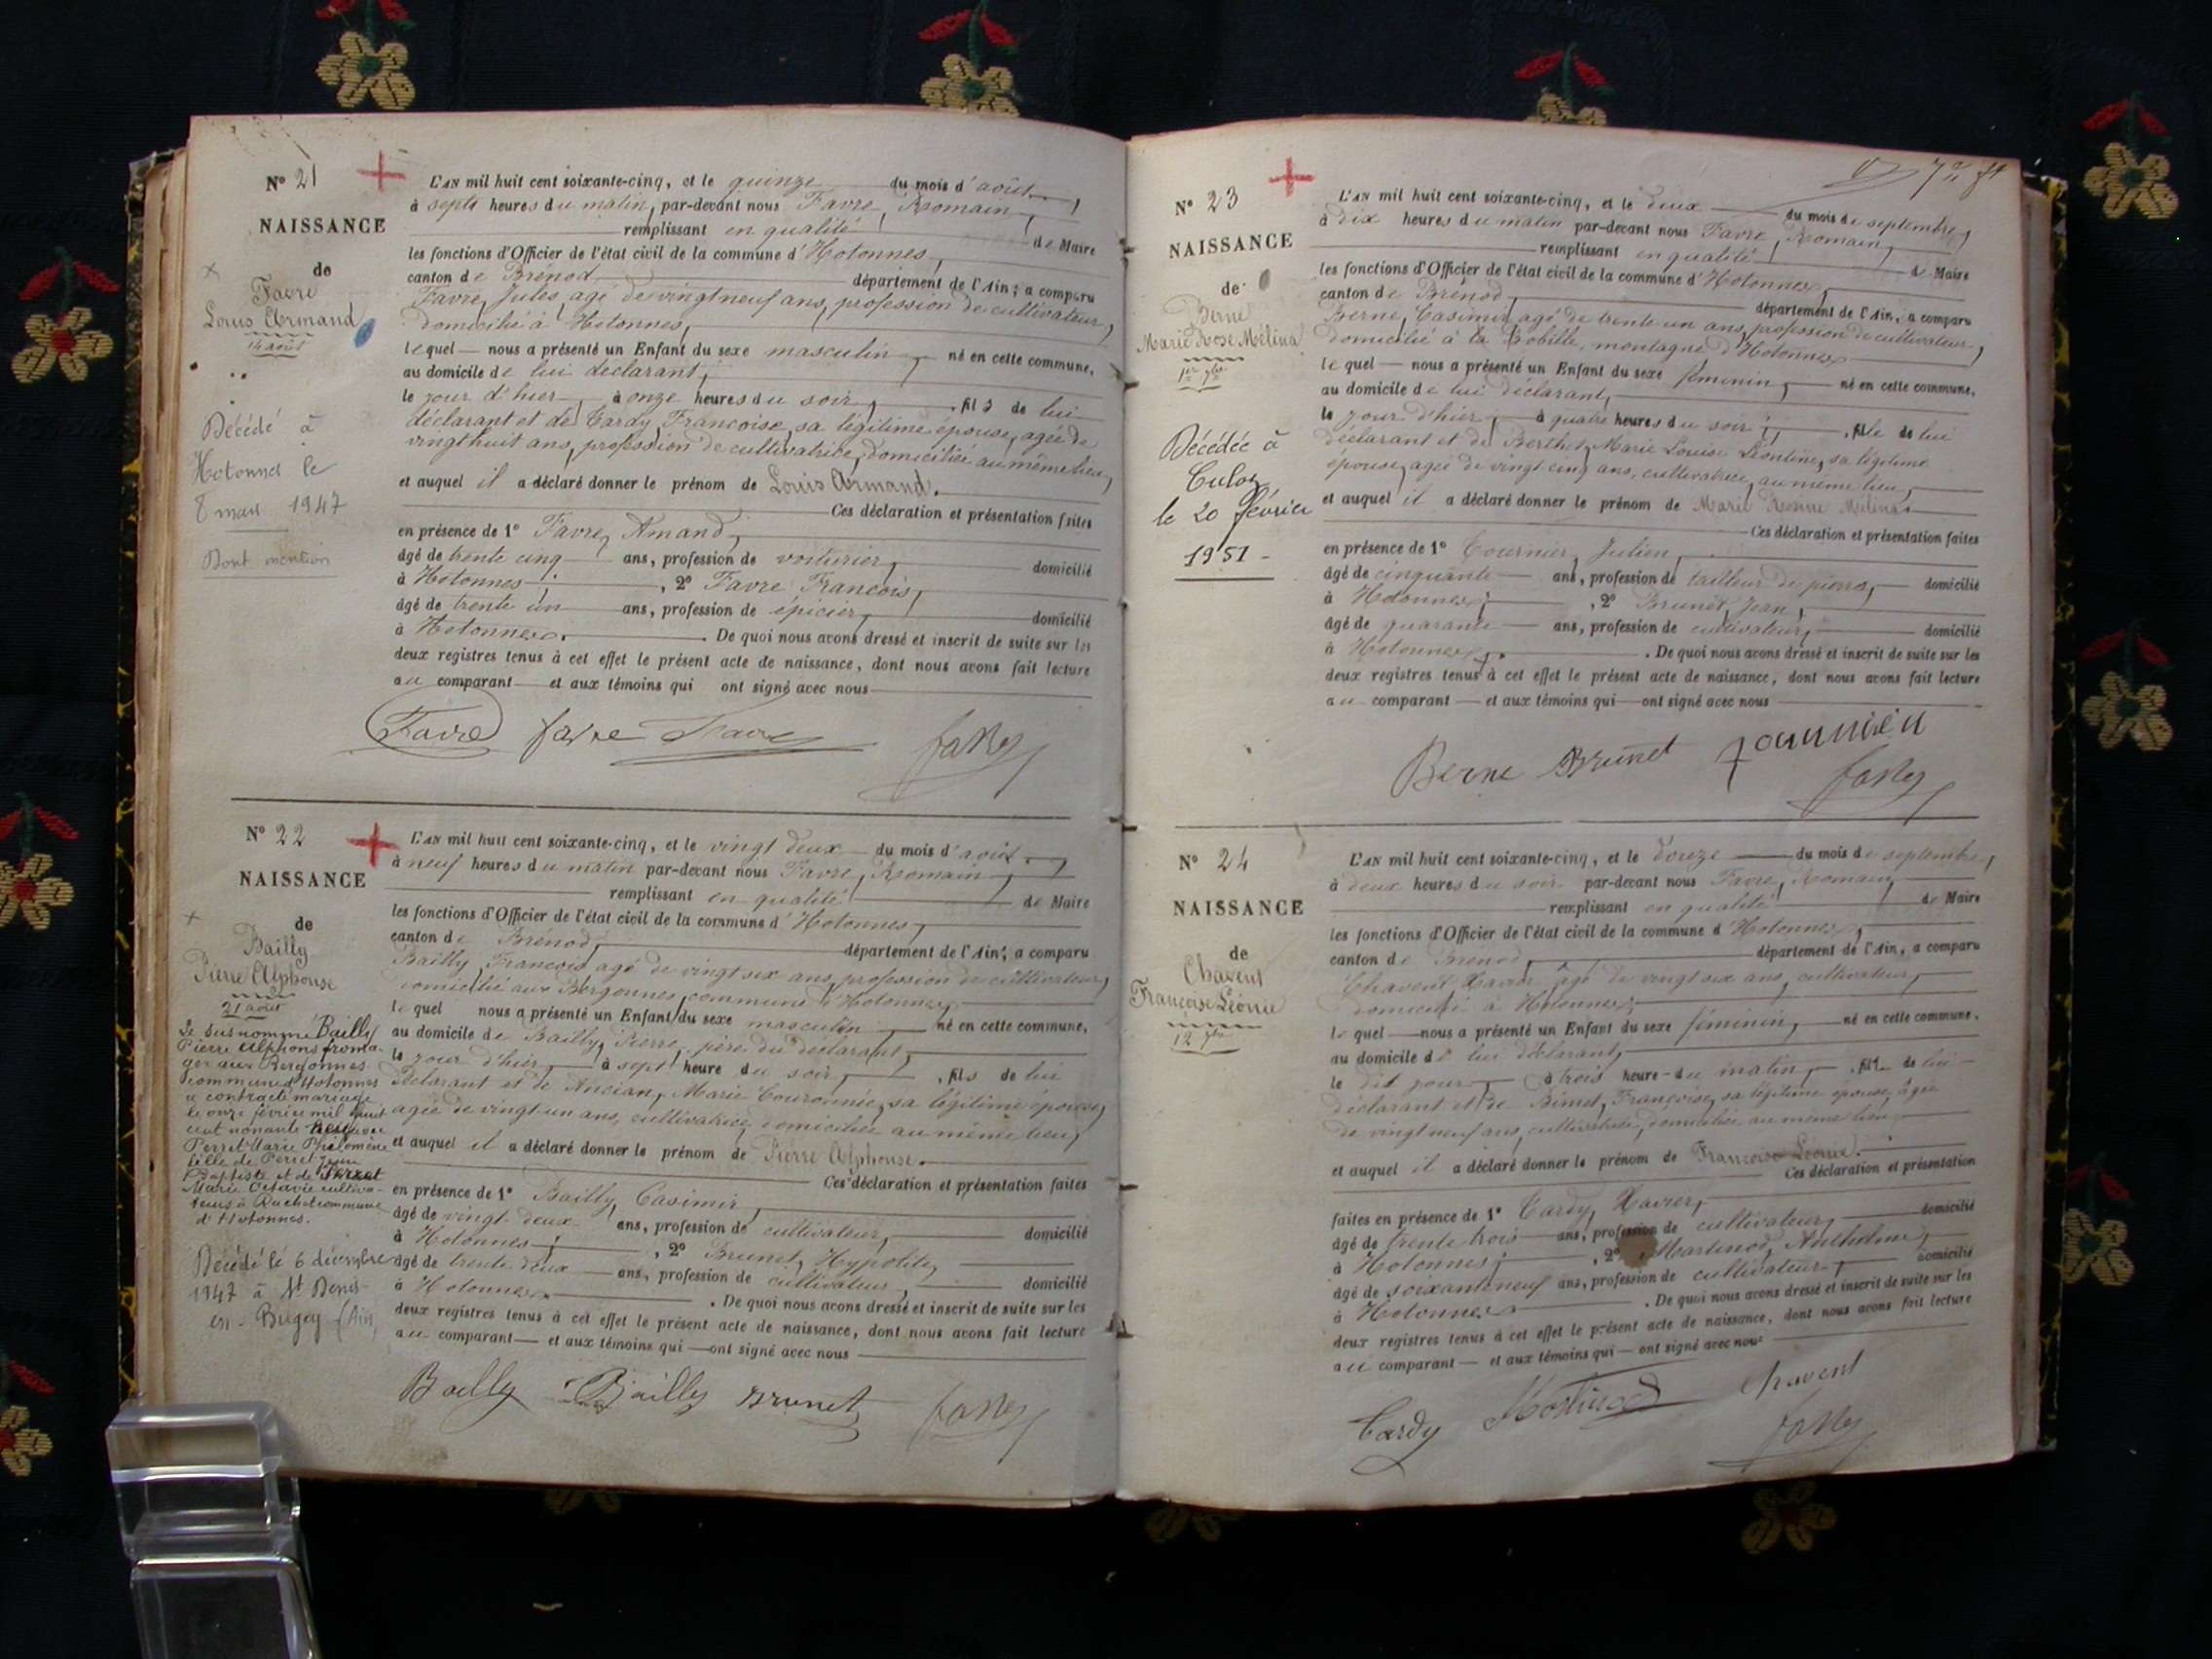 N° 21
NAISSANCE
de
Favre
Louis Armand
14 août
Décédé à
Hotonnes le
8 mars 1947
Dont mention
L'AN mil huit cent soixante-cinq, et le quinze du mois d'août,
à sept heures du matin, par-devant nous Favre, Romain,
remplissant en qualité de Maire
les fonctions d'Officier de l'état civil de la commune d'Hotonnes,
canton de Brénod département de l'Ain; a comparu
Favre, Jules, agé de vingt neuf ans, profession de cultivateur,
domicilié à Hotonnes,
lequel nous a présenté un Enfant du sexe masculin, né en cette commune,
au domicile de lui déclarant,
le jour d'hier, à onze heures du soir, fils de lui
déclarant et de Cardy Francoise, sa légitime épouse, agée de
vingt huit ans, profession de cultivatrice, domiciliée au même lieu,
et auquel il a déclaré donner le prénom de Louis Armand.
Ces déclaration et présentation faites
en présence de 1° Favre, Amand,
âgé de trente cinq ans, profession de voiturier, domicilié
à Hotonnes; , 2° Favre François,
âgé de trente un ans, profession de épicier, domicilié
à Hotonnes. . De quoi nous avons dressé et inscrit de suite sur les
deux registres tenus à cet effet le présent acte de naissance, dont nous avons fait lecture
au comparant et aux témoins qui ont signé avec nous
Favre favre Favre
N° 22
NAISSANCE
de
Bailly
Pierre Alphonse
21 août
Le susnommé Bailly
Pierre Alphons froma-
ger aux Bergonnes
commune d'Hotonnes
a contracté mariage
le onze février mil huit
cent nonante
Perret Marie Philomène
fille de Perret Jean
Baptiste et de Perret
Marie Octavie cultiva-
teurs à Ruchet commune
d'Hotonnes.
Décédé le 6 décembre
1947 à St Denis
en-Bugey (Ain)
L'AN mil huit cent soixante-cinq, et le vingt deux du mois d'août,
à neuf heures du matin par-devant nous Favre, Romain,
remplissant en qualité de Maire
les fonctions d'Officier de l'état civil de la commune d'Hotonnes,
canton de Brénod, département de l'Ain; a comparu
Bailly, François agé de vingt six ans, profession de cultivateur,
domicilié aux Bergonnes, commune d'Hotonnes,
lequel nous a présenté un Enfant du sexe masculin né en cette commune,
au domicile de Bailly, Pierre, père du déclarant,
le jour d'hier, à sept heure du soir, , fils de lui
déclarant et de Ancian, Marie Couronnée, sa légitime épouse,
agée de vingt un ans, cultivatrice, domiciliée au même lieu,
et auquel il a déclaré donner le prénom de Pierre Alphonse.
Ces déclaration et présentation faites
en présence de 1° Bailly, Casimir,
âgé de vingt deux ans, profession de cultivateur, domicilié
à Hotonnes; , 2° Brunet, Hypolite,
âgé de trente deux ans, profession de cultivateur, domicilié
à Hotonnes. . De quoi nous avons dressé et inscrit de suite sur les
deux registres tenus à cet effet le présent acte de naissance, dont nous avons fait lecture
au comparant et aux témoins qui ont signé avec nous
Bailly Bailly Brunet
N° 23
NAISSANCE
de
Berne
Marie Rose Mélina
1er 7bre
Décédée à
Culoz
le 20 février
1951
L'AN mil huit cent soixante-cinq, et le deux du mois de septembre,
à dix heures du matin par-devant nous Favre, Romain,
remplissant en qualité de Maire
les fonctions d'Officier de l'état civil de la commune d'Hotonnes,
canton de Brénod, département de l'Ain, a comparu
Berne, Casimir, agé de trente un ans, profession de cultivateur,
domicilié à la montagne d'Hotonnes
lequel nous a présenté un Enfant du sexe féminin, né en cette commune,
au domicile de lui déclarant,
le jour d'hier, à quatre heures du soir; , fille de lui
déclarant et de Berthet, Marie Louise Léontine, sa légitime
épouse, agée de vingt cinq ans, cultivatrice, au même lieu,
et auquel il a déclaré donner le prénom de Marie Rosine Mélina
Ces déclaration et présentation faites
en présence de 1° Tournier, Julien,
âgé de cinquante ans, profession de tailleur de pierres, domicilié
à Hotonnes; , 2° Brunet, Jean,
âgé de quarante ans, profession de cultivateur, domicilié
à Hotonnes. . De quoi nous avons dressé et inscrit de suite sur les
deux registres tenus à cet effet le présent acte de naissance, dont nous avons fait lecture
au comparant et aux témoins qui ont signé avec nous
Berne Brunet
N° 24
NAISSANCE
de
Chavent
Françoise Léonie
12 7bre
L'AN mil huit cent soixante-cinq, et le douze du mois de septembre,
à deux heures du soir par-devant nous Favre, Romain,
remplissant en qualité de Maire
les fonctions d'Officier de l'état civil de la commune d'Hotonnes,
canton de Brénod, département de l'Ain, a comparu
Chavent Xavier âgé de vingt six ans, cultivateur,
domicilié à Hotonnes;
lequel nous a présenté un Enfant du sexe féminin, né en cette commune,
au domicile de lui déclarant,
le dit jour, à trois heure du matin, , fille de lui
déclarant et de Binet, Françoise, sa légitime épouse, âgée
de vingt neuf ans, cultivatrice, domiciliée au même lieu,
et auquel il a déclaré donner le prénom de Françoise Léonie.
Ces déclaration et présentation
faites en présence de 1° Cardy, Xavier,
âgé de trente trois ans, profession de cultivateur, domicilié
à Hotonnes; , 2° Martinod, Anthelme,
âgé de soixante neuf ans, profession de cultivateur, domicilié
à Hotonnes. . De quoi nous avons dressé et inscrit de suite sur les
deux registres tenus à cet effet le présent acte de naissance, dont nous avons fait lecture
au comparant et aux témoins qui ont signé avec nous
Cardy Martinod Chavent